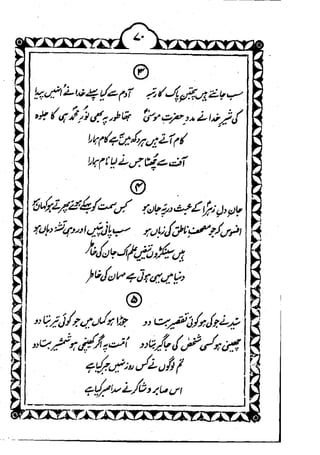 ۷۰
۳
سب جانتے ہیں پنجتن پاک کا رتبہ آدم سے کیا پہلے خدا نے انہیں پیدا
کی شیر خدا نے مدد حضرت موسیٰ تھا طور پہ بھی نور محمد ہی کا جلوہ
کام آتے ہیں ہر دکھ میں ہے کام ہمارا
آفت سے چھٹا جس نے لیا نام ہمارا
۴
جان و دل زہرا کے عبث در پئے جان ہو کس سمت کو بہکے پھرتے ہو کہاں ہو
افسوس کہ جو مصحف ناطق کی زباں ہو سب پانی پئیں اور وہی تشنہ دہاں ہو
ہیں سینکڑوں اک جان کی خاطر
دنیا میں یہی ہوتی ہے مہمان کی خاطر
۵
شبیر نے جو کی ہو کوئی تقصیر بتا دو جوڑا ہو کماں میں جو کوئی تیر بتا دو
چھینی ہو کسی شخص کی جاگیر بتا دو امت پہ اگر کھینچی ہو شمشیر بتا دو
تم لوگوں نے کس روز نہیں جبر کیا ہے
اس صابر و شاکر نے سدا صبر کیا ہے